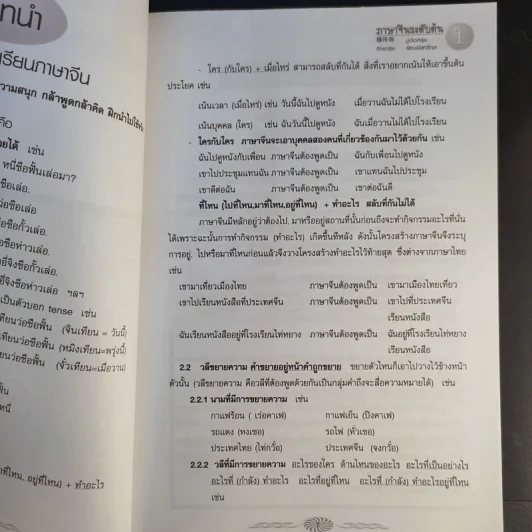 ทนำ
เรียนภาษาจีน
ความสนุก กล้าพูดกล้าคิด
คือ
เช่น
ซือเล่อ.
ซื่อฟั่น
เป็นตัวบอก tense เช่น
(จินเทียน = วันนี้)
(หมิงเทียน=พรุ่งนี้)
(จั่วเทียน=เมื่อวาน)
ที่ไหน, อยู่ที่ไหน) + ทำอะไร
ภาษาจีนระดับต้น
1
- ใคร (กับใคร) + เมื่อไหร่ สามารถสลับที่กันได้ สิ่งที่เราอยากเน้นให้เอาขึ้นต้น
ประโยค เช่น
เน้นเวลา (เมื่อไหร่) เช่น วันนี้ฉันไปดูหนัง เมื่อวานฉันไม่ได้ไปโรงเรียน
เน้นบุคคล (ใคร) เช่น ฉันวันนี้ไปดูหนัง ฉันเมื่อวานไม่ได้ไปโรงเรียน
- ใครกับใคร ภาษาจีนจะเอาบุคคลสองคนที่เกี่ยวข้องกันมาไว้ด้วยกัน เช่น
ฉันไปดูหนังกับเพื่อน ภาษาจีนต้องพูดเป็น ฉันกับเพื่อนไปดูหนัง
เขาไปประชุมแทนฉัน ภาษาจีนต้องพูดเป็น เขาแทนฉันไปประชุม
เขาดีต่อฉัน ภาษาจีนต้องพูดเป็น เขาต่อฉันดี
ที่ไหน (ไปที่ไหน,มาที่ไหน,อยู่ที่ไหน) + ทำอะไร สลับที่กันไม่ได้
ภาษาจีนมีหลักอยู่ว่าต้องไป, มาหรืออยู่สถานที่นั้นก่อนถึงจะทำกิจกรรมอะไรที่นั่น
ได้เพราะฉะนั้นการทำกิจกรรม (ทำอะไร) เกิดขึ้นทีหลัง ดังนั้นโครงสร้างภาษาจีนจึงระบุ
การอยู่, ไปหรือมาที่ไหนก่อนแล้วจึงวางโครงสร้างทำอะไรไว้ท้ายสุด ซึ่งต่างจากภาษาไทย
เช่น
เขามาเที่ยวเมืองไทย ภาษาจีนต้องพูดเป็น เขามาเมืองไทยเที่ยว
เขาไปเรียนหนังสือที่ประเทศจีน ภาษาจีนต้องพูดเป็น เขาไปที่ประเทศจีน
เรียนหนังสือ
ฉันเรียนหนังสืออยู่ที่โรงเรียนไท่หยาง ภาษาจีนต้องพูดเป็น ฉันอยู่ที่โรงเรียนไท่หยาง
เรียนหนังสือ
2.2 วลีขยายความ คำขยายอยู่หน้าคำถูกขยาย ขยายตัวไหนก็เอาไปวางไว้ข้างหน้า
ตัวนั้น (วลีขยายความ คือวลีที่ต้องพูดด้วยกันเป็นกลุ่มคำถึงจะสื่อความหมายได้) เช่น
2.2.1 นามที่มีการขยายความ เช่น
กาแฟร้อน ( เร่อคาเฟ) กาแฟเย็น (ปิงคาเฟ)
รถแดง (หงเชอ) รถไฟ (หั่วเชอ)
ประเทศไทย (ไท่กว๋อ) ประเทศจีน (จงกว๋อ)
2.2.2 วลีที่มีการขยายความ อะไรของใคร ด้านไหนของอะไร อะไรที่เป็นอย่างไร
อะไรที่ (กำลัง) ทำอะไร อะไรที่อยู่ที่ไหน อะไรที่ (กำลัง) ทำอะไรอยู่ที่ไหน
เช่น